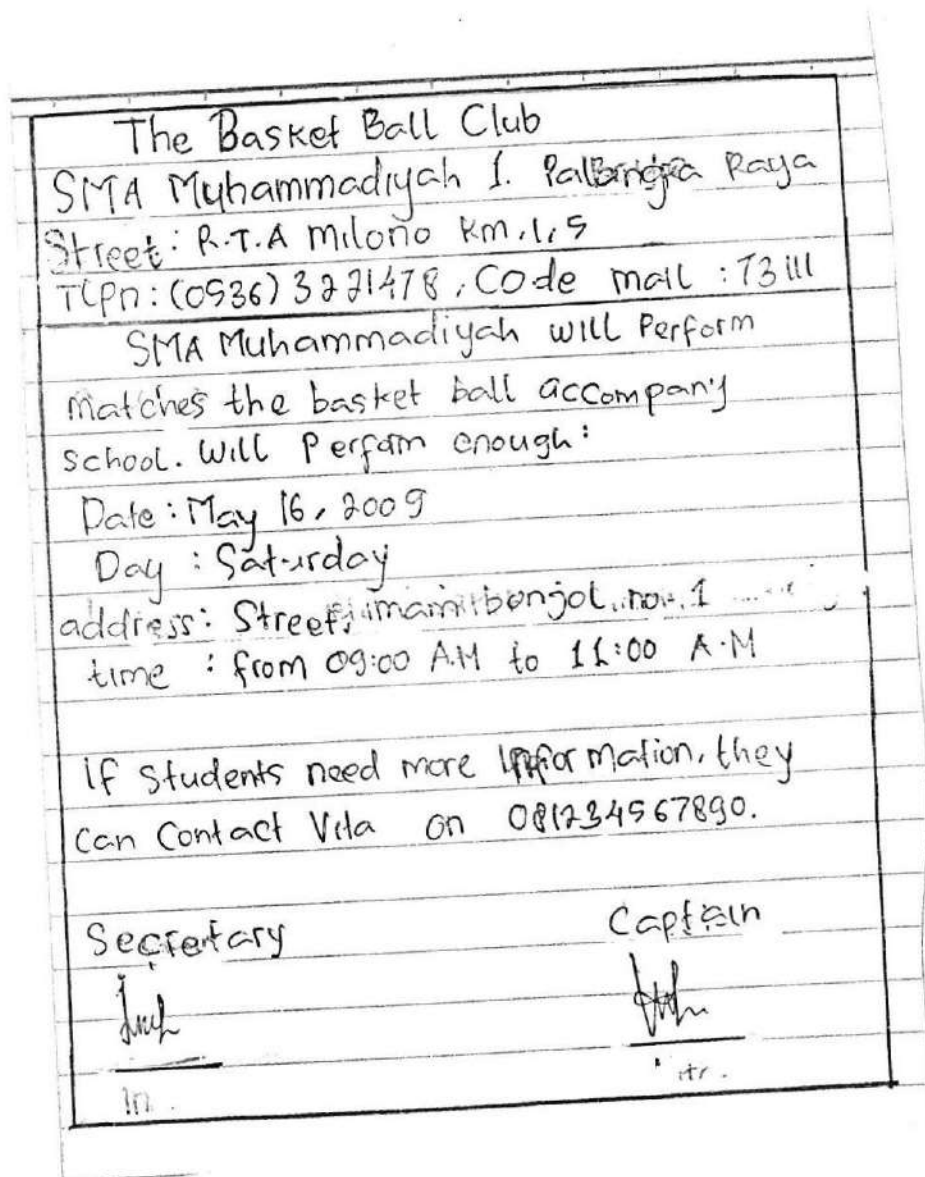 The Basket Ball Club
SMA Muhammadiyah 1. Raya
Street: R.T.A milono Km.1,5
Tlpn: (0536) 3221478, Code mail : 73111
SMA Muhammadiyah will Perform
matches the basket ball accompany
school. Will Perform enough:
Date : May 16, 2009
Day : Saturday
address: Street, imam bonjol, no. 1
time : from 09:00 A.M to 11:00 A.M
if Students need more information, they
can Contact Vita on 081234567890.
Secretary Captain